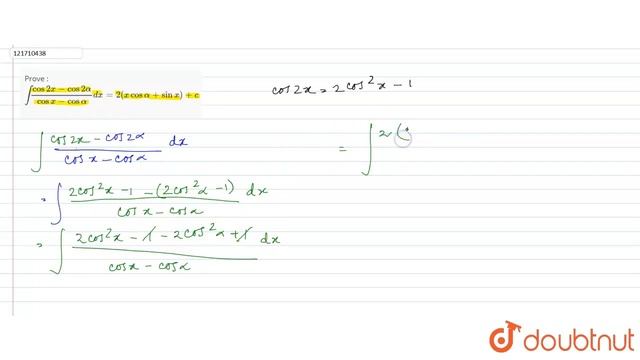 121710438
Prove :
∫ cos 2x − cos 2α / cos x − cos α dx = 2(x cos α + sin x) + c
cos2x = 2cos²x − 1
∫ cos2x − cos2α / cosx − cosα dx
= ∫ 2cos²x − 1 − (2cos²α − 1) / cosx − cosα dx
= ∫ 2cos²x − 1 − 2cos²α + 1 / cosx − cosα dx
= ∫ 2(
doubtnut